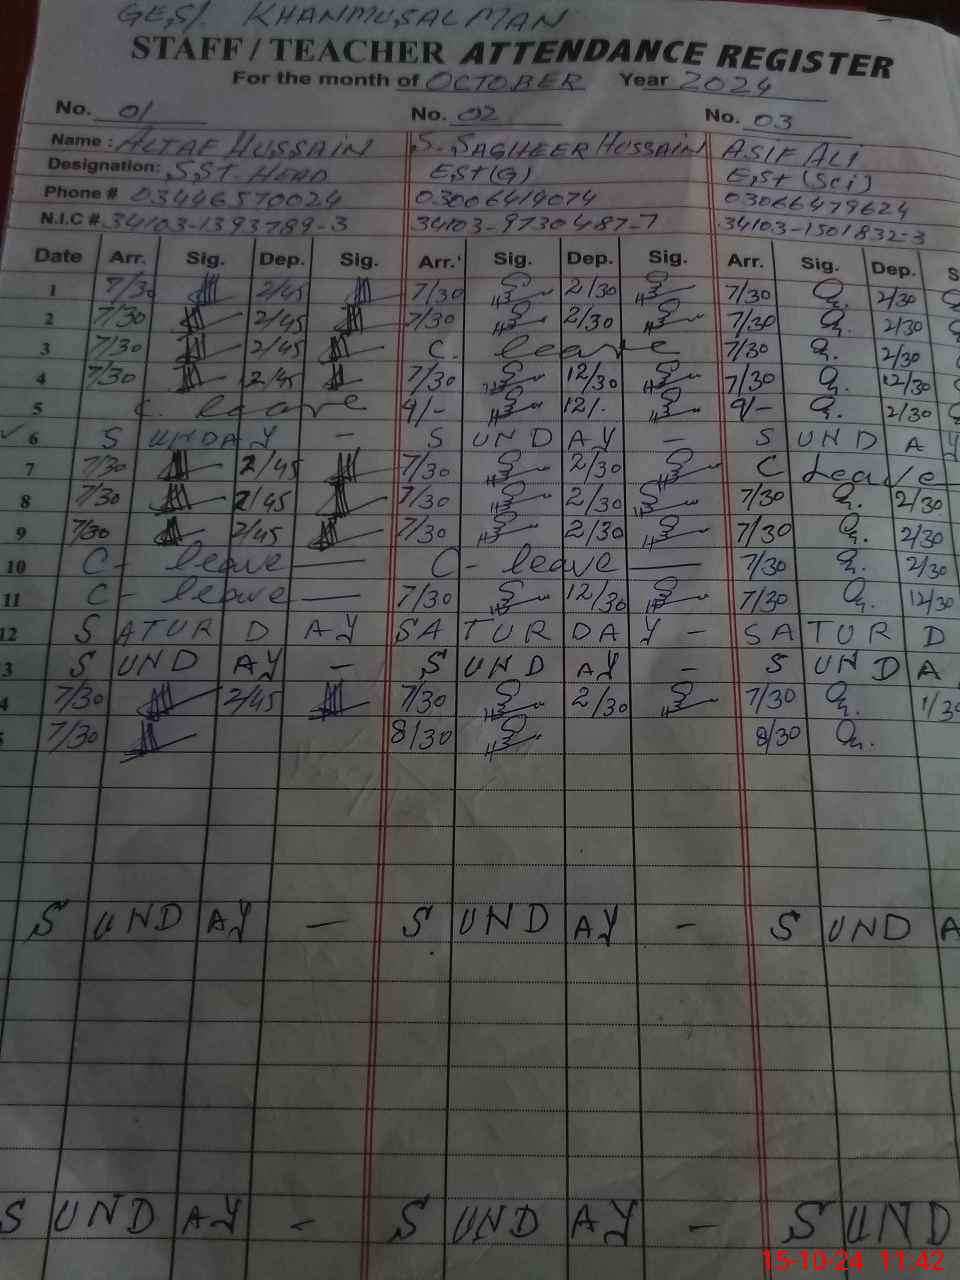 GES/. KHANMUSALMAN
STAFF / TEACHER ATTENDANCE REGISTER
For the month of OCTOBER Year 2024
No. 01 No. 02 No. 03
Name : ALTAF HUSSAIN S. SAGHEER HUSSAIN ASIF ALI
Designation: S,ST. HEAD E,St (G) E,St (Sci)
Phone # 03446570024 03006419074 03066479624
N.I.C # 34103-1393789-3 34103-9730487-7 34103-1501832-3
Date Arr. Sig. Dep. Sig. Arr. Sig. Dep. Sig. Arr. Sig. Dep. S
1 7/30 2/45 7/30 2/30 7/30 2/30
2 7/30 2/45 7/30 2/30 7/30 2/30
3 7/30 2/45 C. leave 7/30 2/30
4 7/30 12/45 7/30 12/30 7/30 12/30
5 C. leave 9/- 12/. 9/- 2/30
6 SUNDAY - SUNDAY - SUNDAY
7 7/30 2/45 7/30 2/30 C Leave
8 7/30 2/45 7/30 2/30 7/30 2/30
9 7/30 2/45 7/30 2/30 7/30 2/30
10 C- leave — C- leave — 7/30 2/30
11 C- leave — 7/30 12/30 7/30 12/30
12 SATURDAY SATURDAY - SATURD
3 SUNDAY - SUNDAY - SUNDA
4 7/30 2/45 7/30 2/30 7/30 1/30
7/30 8/30 8/30
SUNDAY - SUNDAY - SUNDA
SUNDAY - SUNDAY - SUND
15-10-24 11:42